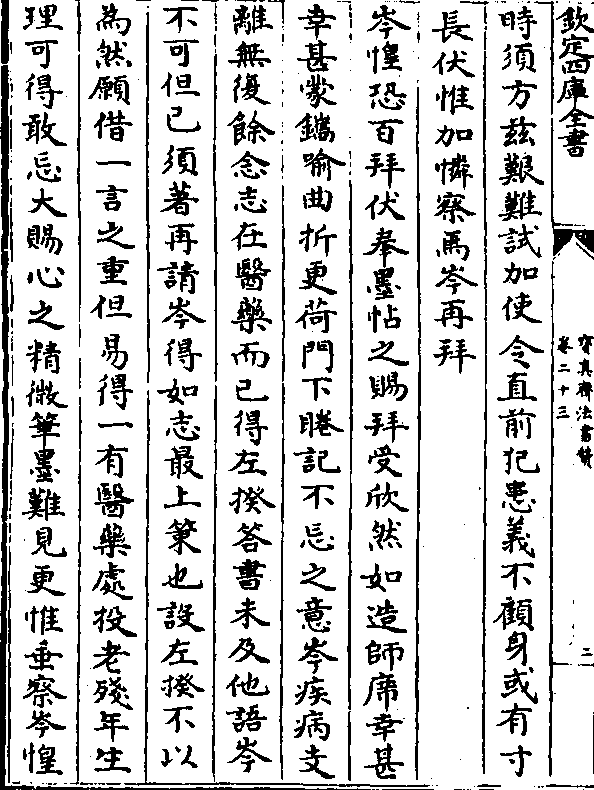 欽定四庫全書
寶真齋法書贊
卷二十三
二
時須方兹艱難試加使令直前犯患義不顧身或有寸
長伏惟加憐察焉岑再拜
岑惶恐百拜伏奉墨帖之賜拜受欣然如造師席幸甚
幸甚蒙鐫喻曲折更荷門下睠記不忘之意岑疾病支
離無復餘念志在醫藥而已得左揆答書未及他語岑
不可但已須著再請岑得如志最上策也設左揆不以
為然願借一言之重但易得一有醫藥處投老殘年生
理可得敢忘大賜心之精微筆墨難見更惟垂察岑惶